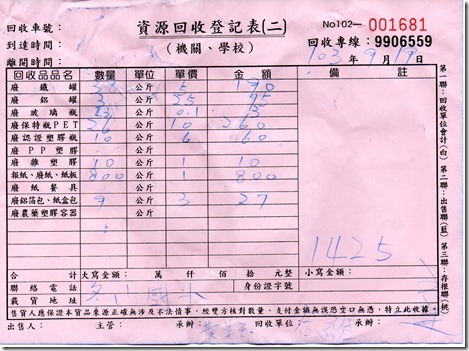 回收車號:
資源回收登記表(二)
No102— 001681
到達時間:
(機關、學校)
回收專線: 9906559
離開時間:
103年9月19日
回收品品名 數量 單位 單價 金額 備註
廢鐵罐 公斤 5 190
廢鋁罐 3 公斤 25 75
廢玻璃瓶 公斤 0.1
廢保特瓶PET 26 公斤 10 260
廢認證塑膠瓶 10 公斤 6 60
廢PP塑膠 公斤
廢雜塑膠 10 公斤 1 10
報紙、廢紙、紙板 800 公斤 1 800
廢紙餐具 公斤
廢鋁箔包、紙盒包 9 公斤 3 27
廢農藥塑膠容器 公斤
1425
合計 大寫金額: 萬 仟 佰 拾 元整 小寫金額:
聯絡電話 身份證字號
載貨地址
售貨人應保證本貨品來源正確無涉及不法情事,經雙方核對數量,支付金額無誤恐空口無憑,特立此收據。
出售人: 主管: 承辦: 回收單位: 承辦:
第一聯:回收單位會計(白) 第二聯:出售聯(藍) 第三聯:存根聯(綠)